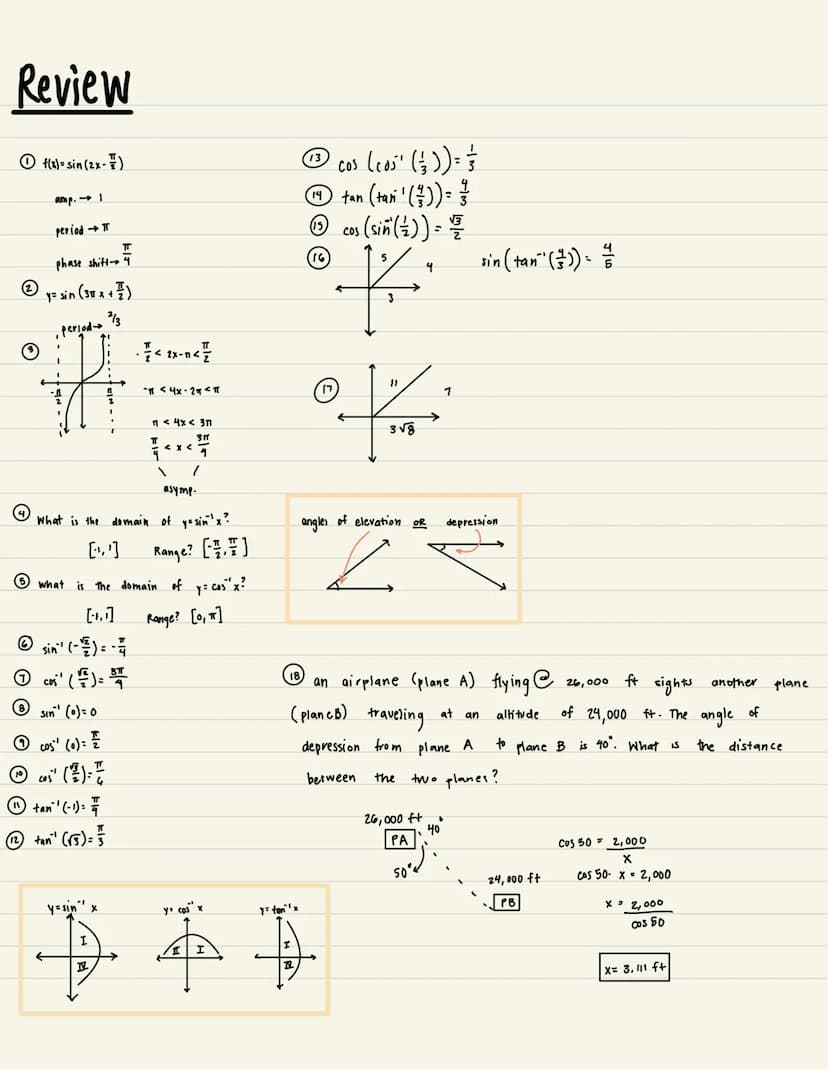 Review
① f(x) = sin(2x - π/2)
amp. → 1
period → π
phase shift → π/4
② y = sin(3πx + π/2)
period → 2/3
③ -π/2 < 2x-π < π/2
-π/2 π/2
-π < 4x - 2π < π
π < 4x < 3π
π/4 < x < 3π/4
asymp.
④ What is the domain of y = sin⁻¹x?
[-1, 1] Range? [-π/2, π/2]
⑤ what is the domain of y = cos⁻¹x?
[-1, 1] Range? [0, π]
⑥ sin⁻¹(-√2/2) = -π/4
⑦ cos⁻¹(√2/2) = 3π/4
⑧ sin⁻¹(0) = 0
⑨ cos⁻¹(0) = π/2
⑩ cos⁻¹(√3/2) = π/6
⑪ tan⁻¹(-1) = π/4
⑫ tan⁻¹(√3) = π/3
y = sin⁻¹ x
I
IV
y = cos⁻¹ x
II I
y = tan⁻¹ x
I
IV
⑬ cos(cos⁻¹(1/3)) = 1/3
⑭ tan(tan⁻¹(4/3)) = 4/3
⑮ cos(sin⁻¹(1/2)) = √3/2
⑯ 5 4 3 sin(tan⁻¹(4/3)) = 4/5
⑰ 11 7 3√8
angles of elevation OR depression
⑱ an airplane (plane A) flying @ 26,000 ft sights another plane
(plane B) traveling at an altitude of 24,000 ft. The angle of
depression from plane A to plane B is 40°. What is the distance
between the two planes?
26,000 ft
PA 40°
50°
24,000 ft
PB
cos 50 = 2,000/x
cos 50 · x = 2,000
x = 2,000/cos 50
x = 3,111 ft